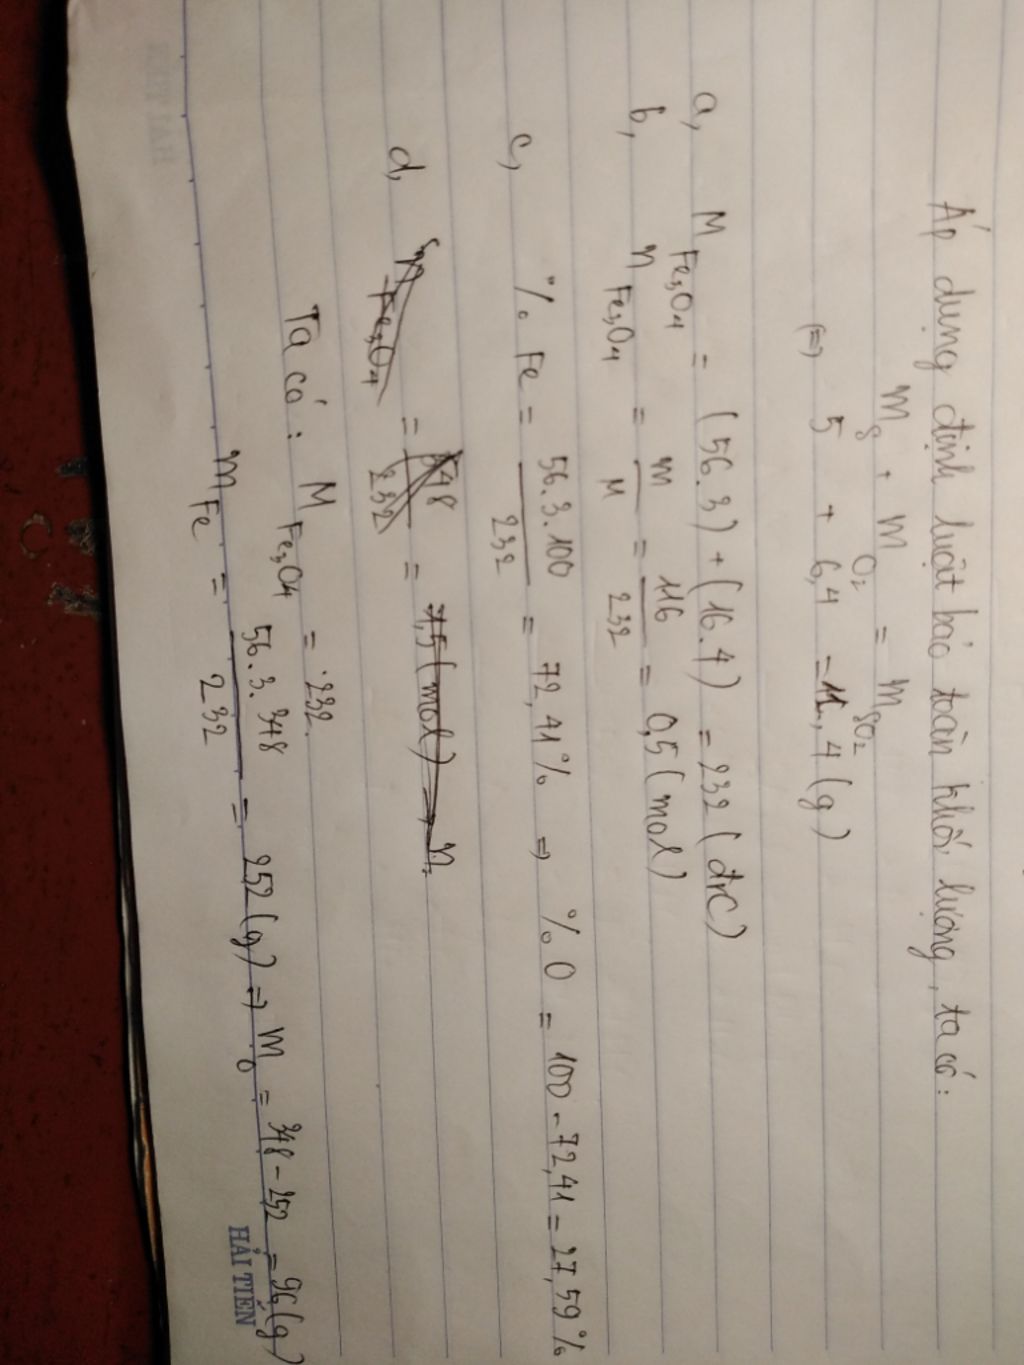 Áp dụng định luật bảo toàn khối lượng, ta có:
m S + m O2 = m SO2
(=) 5 + 6,4 = 11,4 (g)
a, M Fe3O4 = (56.3) + (16.4) = 232 (đvC)
b, n Fe3O4 = m/M = 116/232 = 0,5 (mol)
c, % Fe = 56.3.100/232 = 72,41% => % O = 100 - 72,41 = 27,59%
d, n Fe3O4 = 348/232 = 1,5 (mol) => n
Ta có: M Fe3O4 = 232.
m Fe = 56.3.348/232 = 252 (g) => m O = 348 - 252 = 96 (g)
HẢI TIẾN